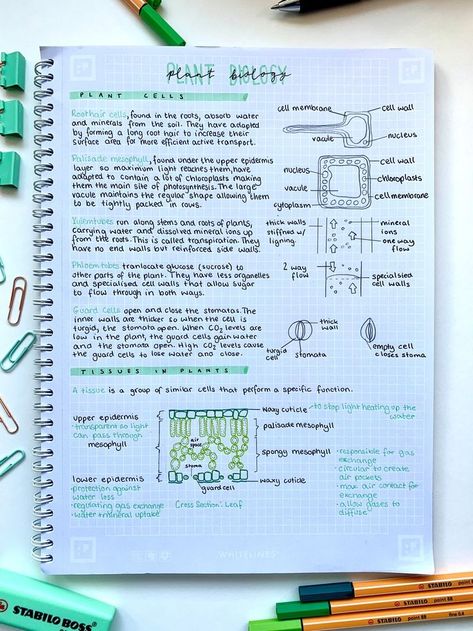 PLANT BIOLOGY
plant biology
PLANT CELLS
Root hair cells, found in the roots, absorb water
and minerals from the soil. They have adapted
by forming a long root hair to increase their
surface area for more efficient active transport.
cell membrane
cell wall
vacule
nucleus
Palisade mesophyll, found under the upper epidermis
layer so maximum light reaches them, have
adapted to contain a lot of chloroplasts making
them the main site of photosynthesis. The large
vacule maintains the regular shape allowing them
to be tightly packed in rows.
nucleus
vacule
cytoplasm
cell wall
chloroplasts
cell membrane
Xylem tubes run along stems and roots of plants,
carrying water and dissolved mineral ions up
from the roots. This is called transpiration. They
have no end walls but reinforced side walls.
thick walls
stiffned w/
ligning.
mineral
ions
one way
flow
Phloem tubes tranlocate glucose (sucrose) to
other parts of the plant. They have less organelles
and specialised cell walls that allow sugar
to flow through in both ways.
2 way
flow
specialsied
cell walls
Guard cells open and close the stomatas. The
inner walls are thicker so when the cell is
turgid, the stomata open. When CO2 levels are
low in the plant, the guard cells gain water
and the stomata open. High CO2 levels cause
the guard cells to lose water and close.
thick
wall
turgid
cell
stomata
empty cell
closes stoma
TISSUES IN PLANTS
A tissue is a group of similar cells that perform a specific function.
upper epidermis
•transparent so light
can pass through
mesophyll
lower epidermis
•protection against
water loss
•regulating gas exchange
•water + mineral uptake
air
space
stoma
guard cell
Cross Section: Leaf
waxy cuticle
•to stop light heating up the
water
palisade mesophyll
spongy mesophyll
•responsible for gas
exchange
•circular to create
air pockets
•max air contact for
exchange
•allow gases to
diffuse
waxy cuticle
WHITELINES
STABILO BOSS
STABILO point 88
STABILO point 88